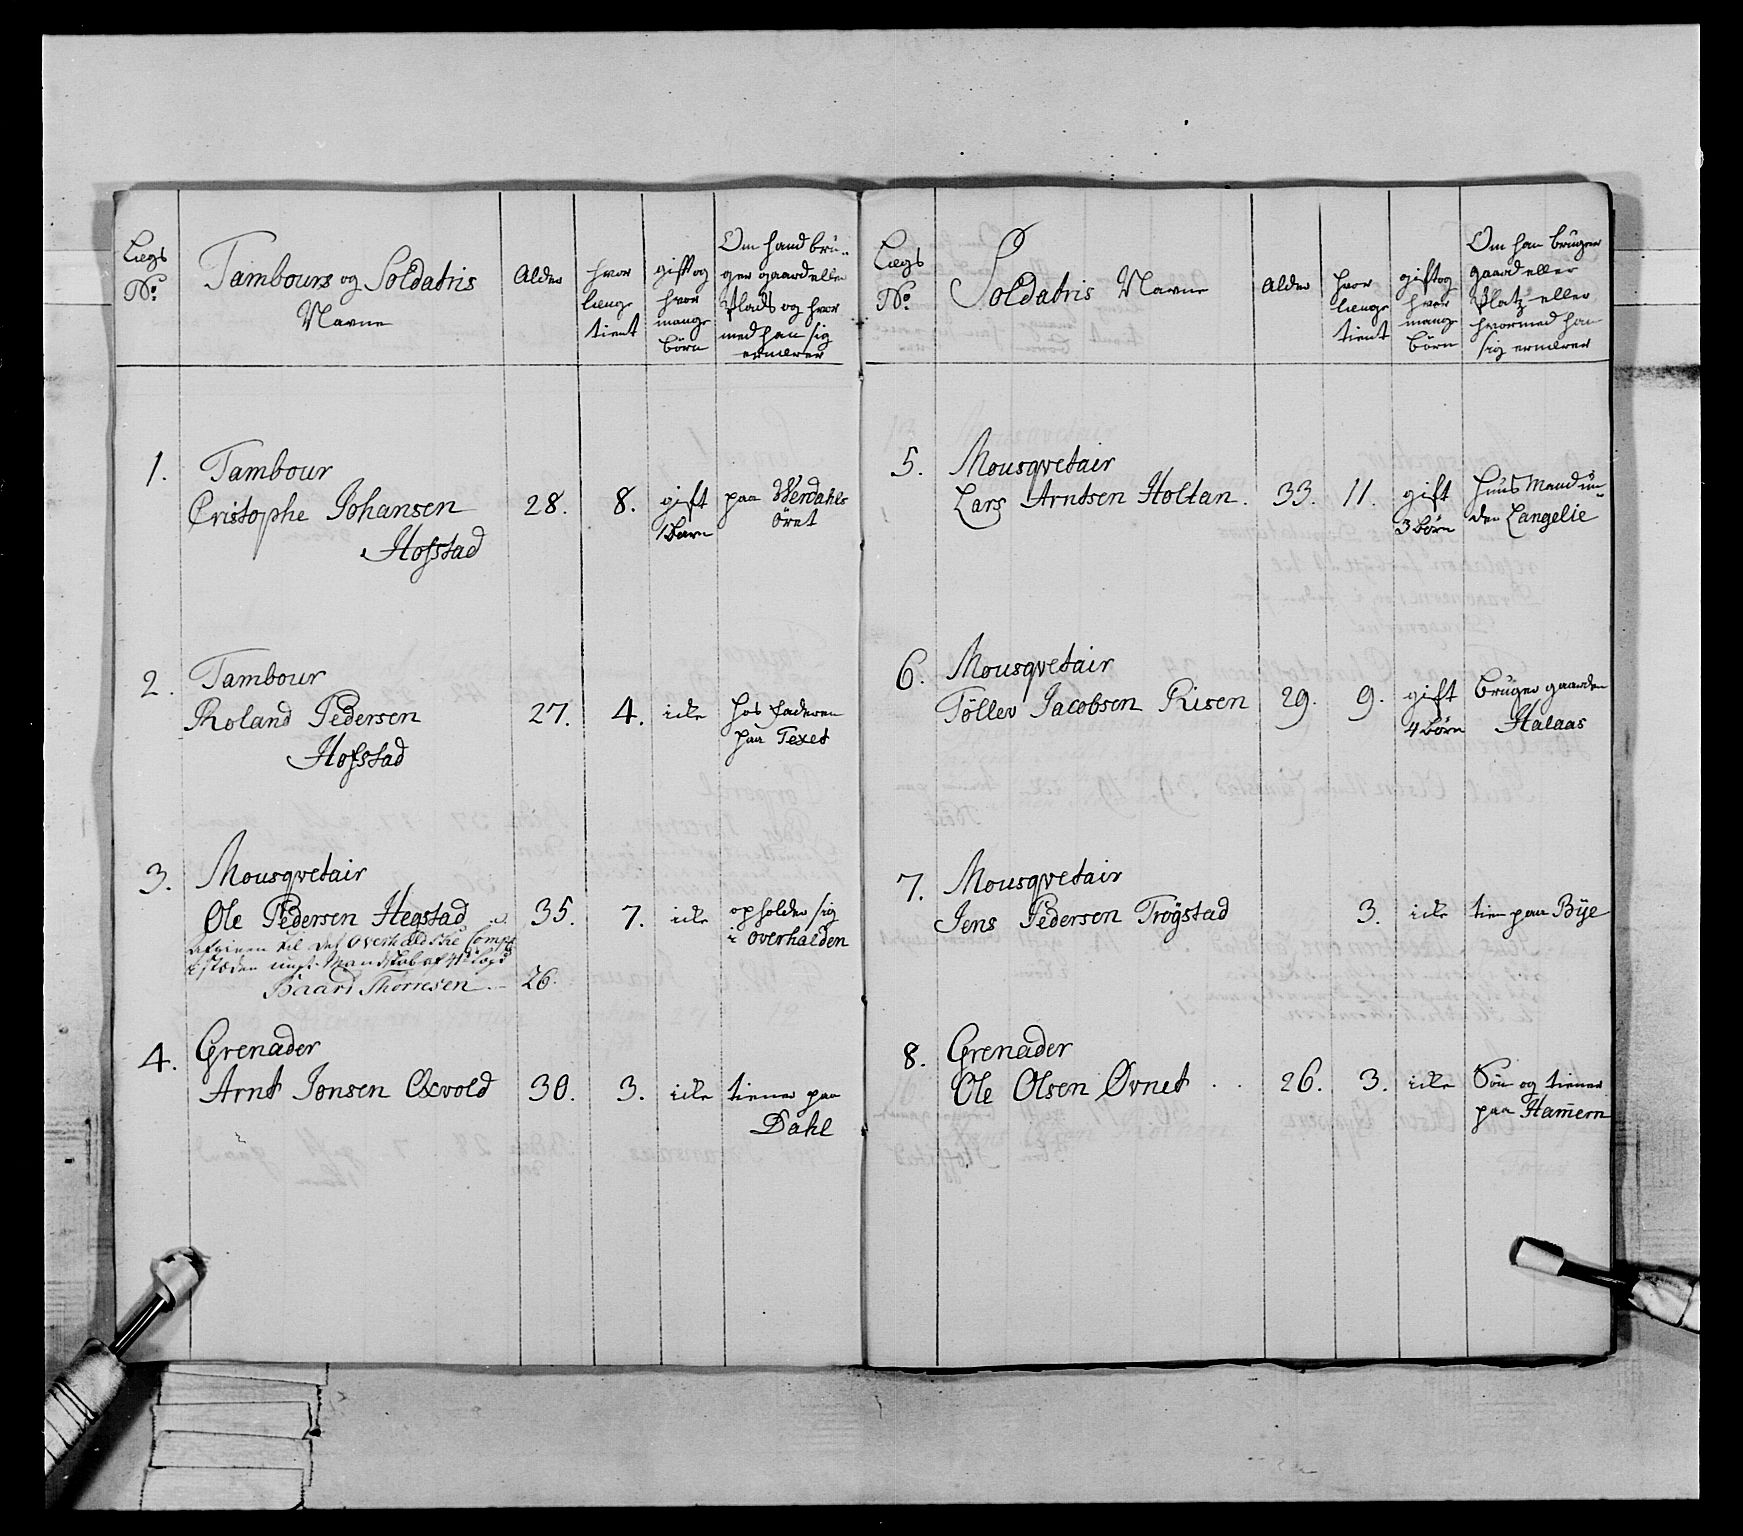 Lægs
No.
Tambours og Soldatris
Navne
Alder
hvor
længe
tient
gift og
hvor
mange
børn
Om hand brü-
ger gaard eller
Plads og hvor
med han sig
ernærer
1.
Tambour
Cristophe Johansen
Hofstad
28.
8.
gift
1 barn
paa Werdahls
öret
2.
Tambour
Roland Pedersen
Hofstad
27.
4.
icke
hos faderen
paa Texet
3.
Mousqvetair
Ole Pedersen Hegstad
35.
7.
icke
opholder sig
i overhalden
afgiven til det Overhaldske Comp:
i stæden ungt Mandskab af
Baard Thorresen
26.
4.
Grenader
Arnt Jonsen Oxvold
30.
3.
icke
tiener paa
Dahl
Lægs
No.
Soldatris Navne
Alder
hvor
længe
tient
gift og
hvor
mange
børn
Om han brüger
gaard eller
Platz eller
hvormed han
sig ernærer
5.
Mousqvetair
Lars Arntsen Holtan.
33.
11.
gift
3 börn
Huus Mand un-
der Langelie
6.
Mousqvetair
Töllev Jacobsen Risen
29.
9.
gift
4 börn
brüger gaarden
Halaas
7.
Mousqvetair
Jens Pedersen Tröystad
3.
icke
tien paa Bÿe
8.
Grenader
Ole Olsen Øvnet
26.
3.
icke
Sön og tiener
paa Hamern